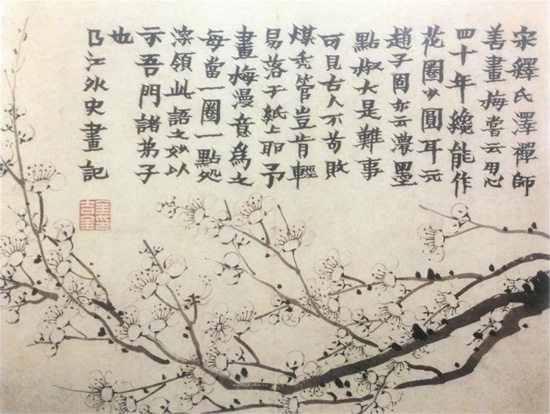 宋釋氏澤禪師
善畫梅嘗云用心
四十年纔能作
花圈少圓耳元
趙子固亦云濃墨
點椒大是難事
可見古人不苟敗
煤禿管豈肯輕
易落于紙上耶予
畫梅漫意爲之
每當一圈一點処
深領此語之妙以
示吾門諸弟子
也
曲江外史畫記